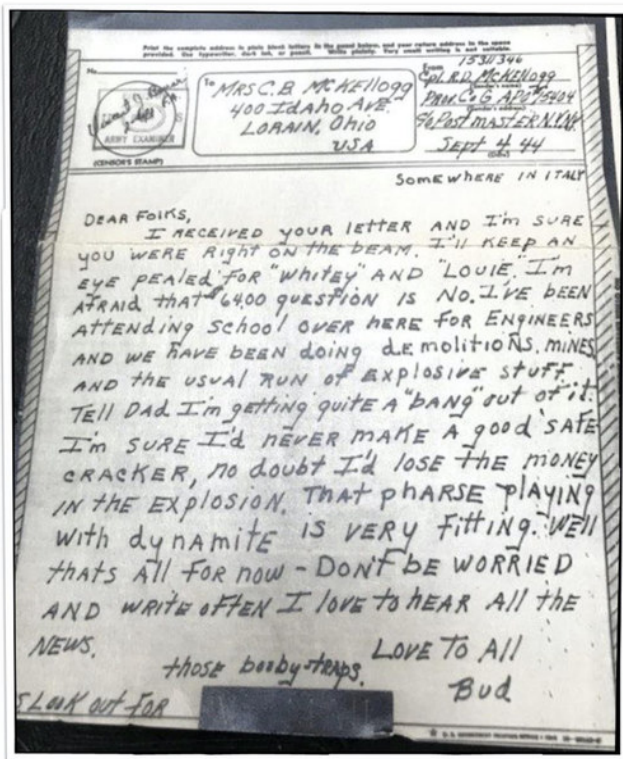 Print the complete address in plain block letters in the panel below, and your return address in the space
provided. Use typewriter, dark ink, or pencil. Write plainly. Very small writing is not suitable.
No.
ARMY EXAMINER
(CENSOR'S STAMP)
To
MRS C.B. McKEllogg
400 IdAho AVE.
LORAIN, Ohio
USA
From
15311346
Cpl. R.D. McKEllogg
(Sender's name)
PROV. Co G APO# 15404
(Sender's address)
c/o PostmASTER N.Y. N.Y.
Sept 4 44
(Date)
SomEwhERE IN ITALY
DEAR FolKS,
I RECEIVED youR lETTER AND I'm SURE
you WERE RighT ON THE BEAM. I'll KEEP AN
EyE PEAlED FoR "WhitEy" AND "LouiE". I'm
AFRAiD thAt $6400 quEStion IS No. I'VE BEEN
ATTENDING School OVER HERE FoR ENgiNEERS
AND WE hAVE BEEN DoiNg dEmolitioNS, miNES,
AND thE uSuAl RuN of ExploSivE Stuff.
TEll DAd I'm gEtting quitE A "bANg" out of it.
I'm SURE I'd nEVER mAKE A good SAFE
CRACKER, no doubt I'd loSE thE monEy
IN thE ExploSioN. ThAt phARSE plAyiNg
With dynAmitE iS vERy fitting. WEll
thAtS All foR now - DoN't bE WORRiED
AND wRitE oftEN I lovE to hEAR All thE
NEWS.
LovE To All
Bud
Look out foR
thoSE booby-tRApS.